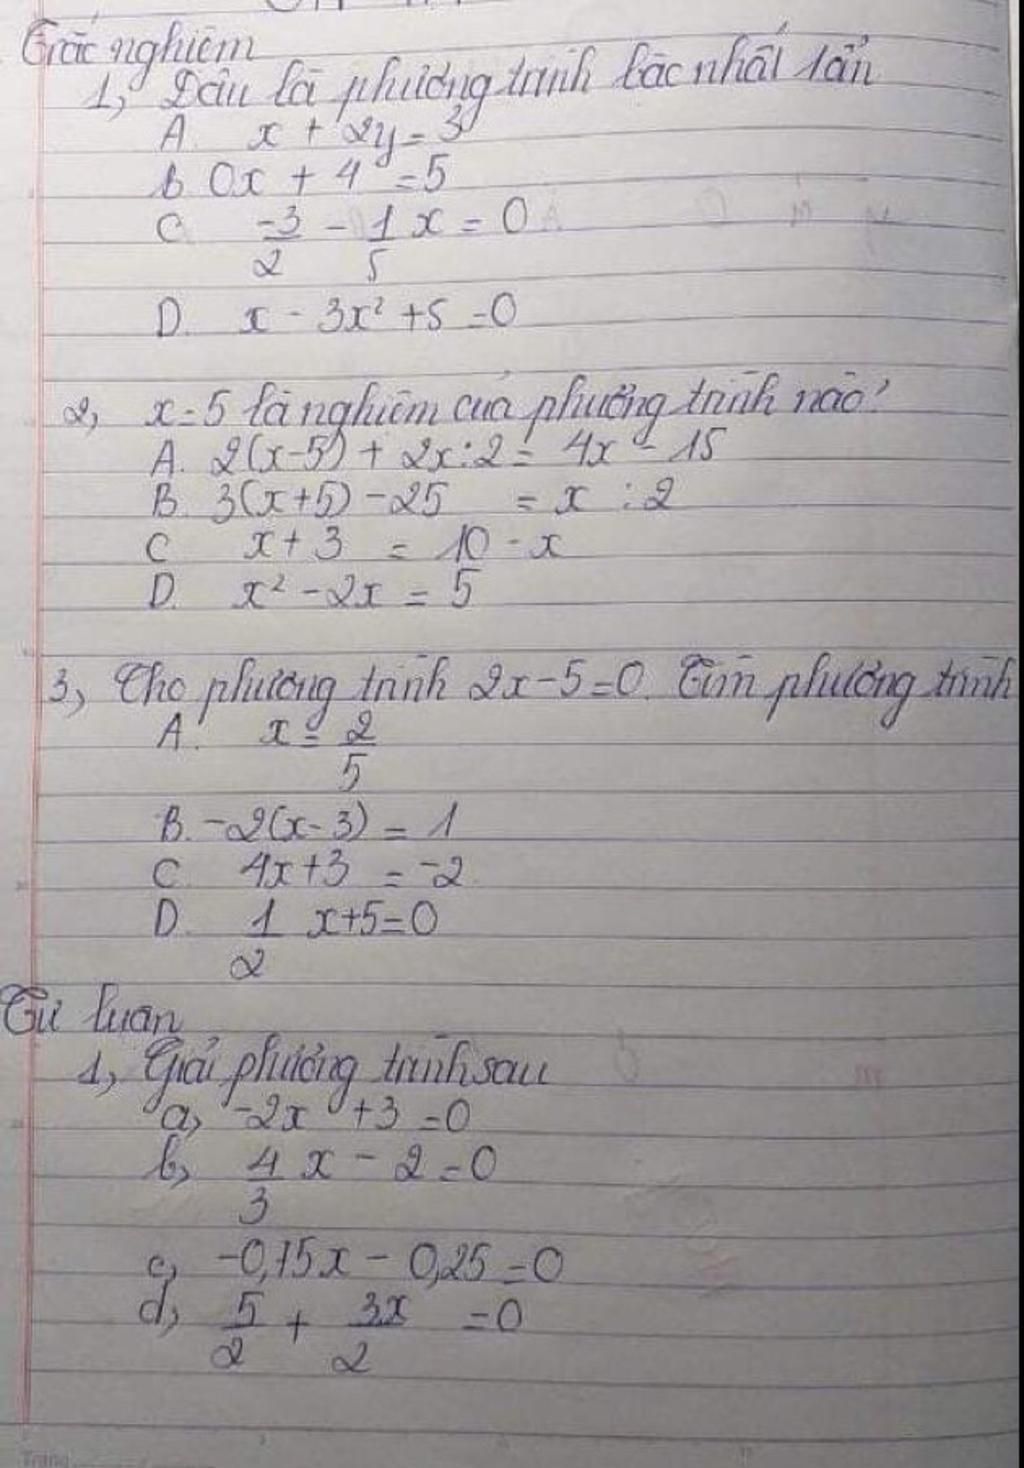 Trắc nghiệm
1, Đâu là phương trình bậc nhất 1 ẩn
A. x + 2y = 3
B 0x + 4 = 5
C -3/2 - 1/5 x = 0
D. x - 3x² + 5 = 0
2, x = 5 là nghiệm của phương trình nào?
A. 2(x-5) + 2x:2 = 4x - 15
B. 3(x+5) - 25 = x : 2
C x + 3 = 10 - x
D. x² - 2x = 5
3, Cho phương trình 2x - 5 = 0. Tìm phương trình
A. x = 2/5
B. -2(x-3) = 1
C. 4x+3 = -2
D. 1/2 x+5=0
Tự luận
1, Giải phương trình sau
a, -2x + 3 = 0
b, 4/3 x - 2 = 0
c, -0,15x - 0,25 = 0
d, 5/2 + 3x/2 = 0